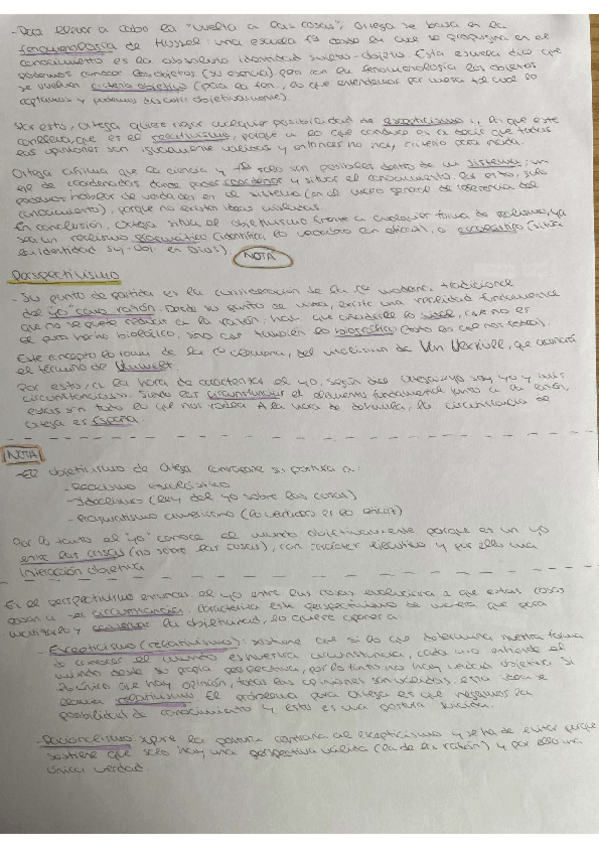 - Para llevar a cabo la "vuelta a las cosas", Ortega se basa en la
fenomenología de Husserl: una escuela fª donde en que se propugna en el
conocimiento es la absoluta identidad sujeto-objeto. Esta escuela dice que
podemos conocer los objetos (su esencia), pero con la fenomenología los objetos
se vuelven criterio objetivo (para la fen., lo que entendemos por mesa tal cual lo
captamos y podemos discutir objetivamente).
Por esto, Ortega quiere rejar cualquier posibilidad de escepticismo, lo que este
conlleva, que es el relativismo, porque a lo que conduce es a decir que todas
las opiniones son igualmente válidas y entonces no hay criterio para nada.
Ortega afirma que la ciencia y fª solo son posibles dentro de un sistema; un
eje de coordenadas donde poder coordenar y situar el conocimiento. Por esto, solo
podemos hablar de verdades en el sistema (en el marco general de referencia del
conocimiento), porque no existen ideas aisladas.
En conclusión, Ortega sitúa el objetivismo frente a cualquier forma de realismo, ya
sea un realismo pragmático (identifica lo verdadero en eficaz), o escolástico (sitúa
la identidad suj-obj. en Dios).
NOTA
Perspectivismo
- Su punto de partida es la consideración de la fª moderna tradicional
del "yo" como razón. Desde su punto de vista, existe una realidad fundamental
que no se puede reducir a la razón, hay que considerar lo vital, que no es
el puro hecho biológico, sino que también lo biográfico (todo lo que nos rodea).
Este concepto lo toma de la fª alemana, del vitalismo de Von Uexküll, que acuñó
el término de Umwelt.
Por esto, a la hora de caracterizar el yo, según dice Ortega: yo soy yo y mis
circunstancias. Siendo las circunstancias el elemento fundamental junto a la razón,
estas son todo lo que nos rodea. A la hora de la circunstancia de
Ortega es España.
NOTA
- El objetivismo de Ortega contrapone su postura a:
- Realismo escolástico
- Idealismo (ley del yo sobre las cosas)
- Pragmatismo americano (lo verdadero es lo eficaz)
Por lo tanto el "yo" conoce el mundo objetivamente porque es un yo
entre las cosas (no sobre las cosas), con carácter ejecutivo y por ello una
interacción objetiva
En el perspectivismo entonces el yo entre las cosas evoluciona a que estas cosas
pasan a ser circunstancias. Caracteriza este perspectivismo de manera que para
la objetividad, lo quiere oponer a:
- Escepticismo (relativismo): sostiene que si lo que determina nuestra forma
de conocer el mundo es nuestra circunstancia, cada uno entiende el
mundo desde su propia perspectiva, por lo tanto no hay verdad objetiva. Si
lo único que hay opinión, todas las opiniones son válidas. Esta idea se
llama relativismo. El problema para Ortega es que negamos la
posibilidad de conocimiento y esto es una postura suicida.
- Racionalismo: sería la postura contraria al escepticismo y se ha de evitar porque
sostiene que solo hay una perspectiva válida (la de la razón) y por ello una
única verdad.